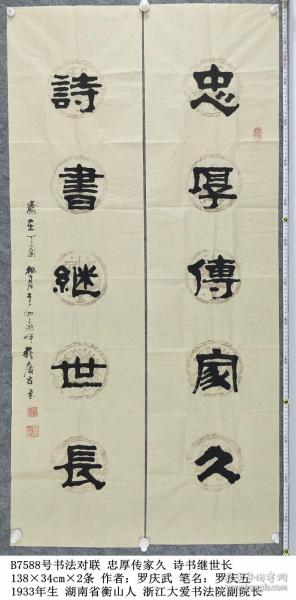 忠厚傳家久
詩書継世長
歲在丁酉
B7588号书法对联 忠厚传家久 诗书继世长
138×34cm×2条 作者：罗庆武 笔名：罗庆五
1933年生 湖南省衡山人 浙江大爱书法院副院长